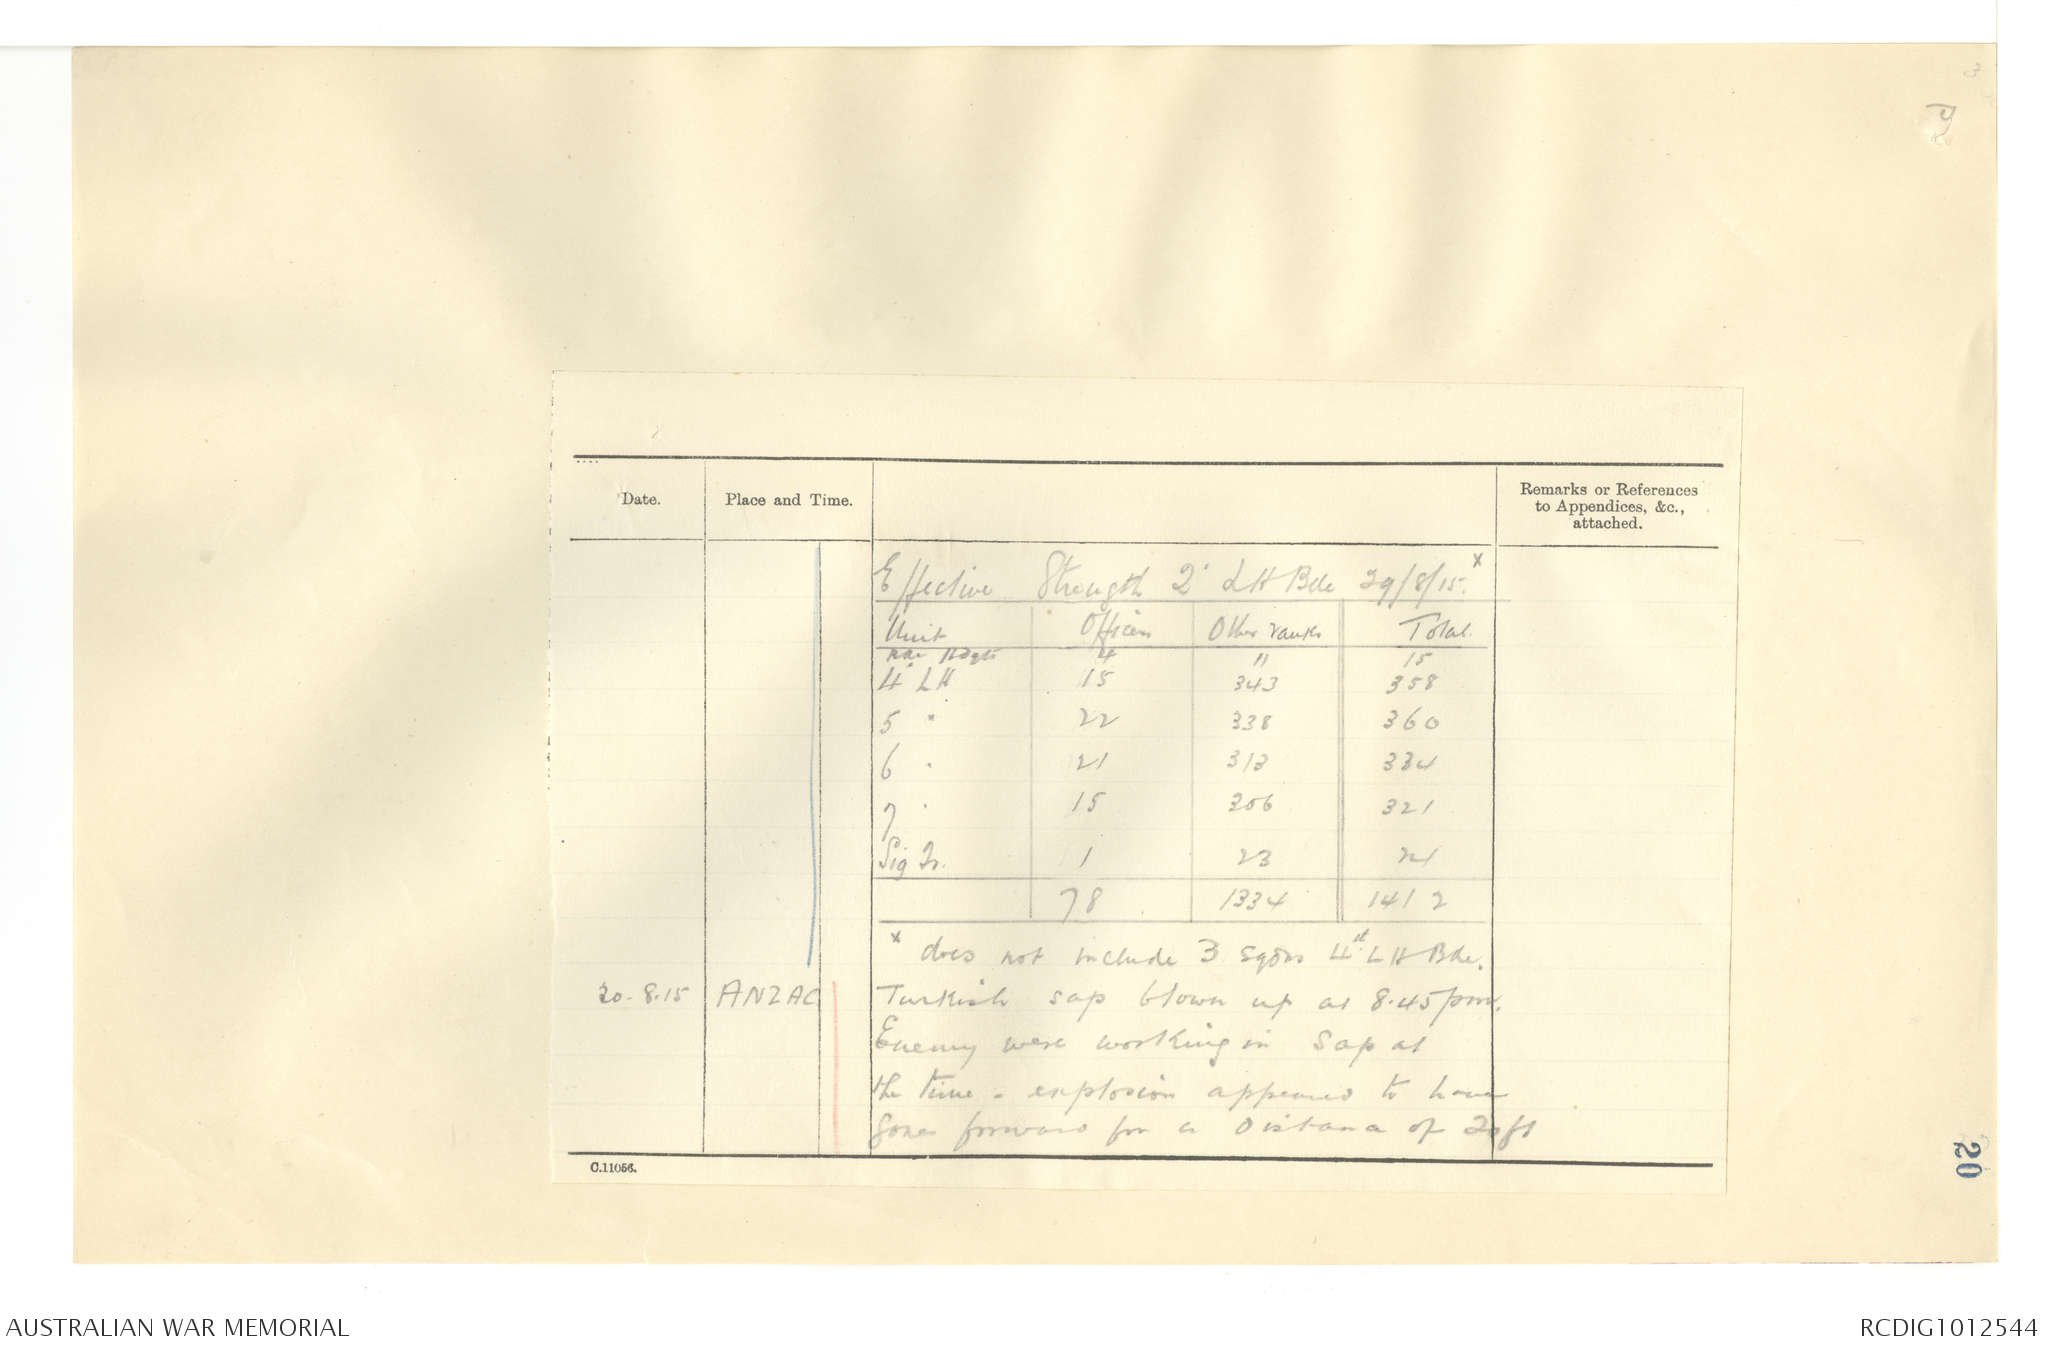 Date.
Place and Time.
Remarks or References
to Appendices, &c.,
attached.
Effective Strength 2 LH Bde 29/8/15. x
Unit Officers Other ranks Total.
Bde Hdqts 4 11 15
4 LH 15 343 358
5 " 22 338 360
6 " 21 313 334
7 " 15 306 321
Sig Tr. 1 23 24
78 1334 1412
x does not include 3 sqdns 4 LH Bde.
30.8.15 ANZAC Turkish sap blown up at 8.45pm.
Enemy were working in sap at
the time - explosion appeared to have
gone forward for a distance of 20ft
C.11056.
20
AUSTRALIAN WAR MEMORIAL
RCDIG1012544